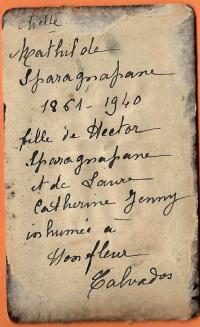 Mathilde
Sparagnapane
1861-1940
fille de Hector
Sparagnapane
et de Laure
Catherine Jenny
inhumée à
Honfleur
Calvados